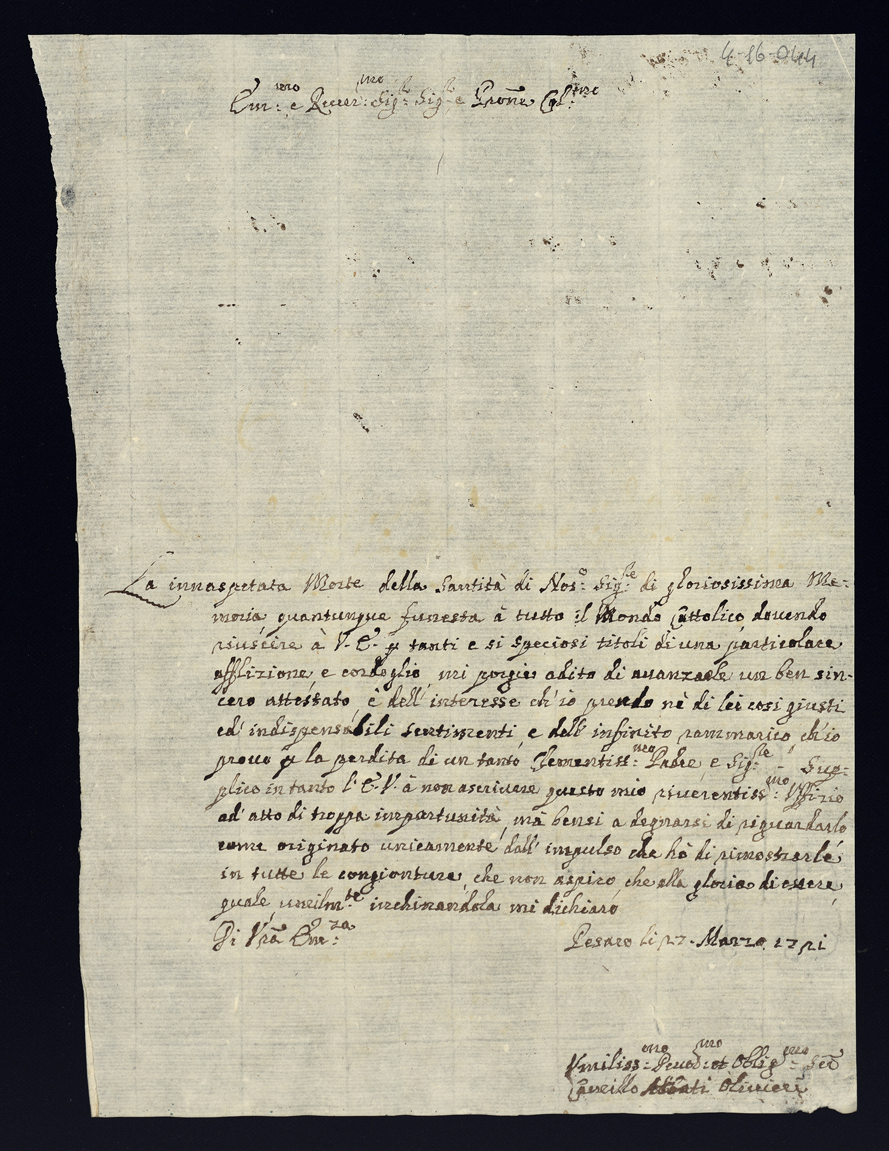 4-16-044
Em:mo e Rever:mo Sig:re Sig:re e Prōne Col:mo
La innaspetata Morte della Santità di Nos:o Sig:re di gloriosissima Me=
moria quantunque funesta à tutto il Mondo Cattolico dovendo
riuscire à V. E. p tanti e si speciosi titoli di una particolare
afflizione, e cordoglio, mi porgie adito di avanzarle un ben sin=
cero attestato, è dell' interesse ch'io prendo nè di lei cosi giusti
ed' indispensabili sentimenti, e dell' infinito rammarico ch'io
provo p la perdita di un tanto Clementiss:mo Padre, e Sig:re Sup=
plico in tanto l' E. V. à non ascrivere questo mio riverentiss:mo Uffizio
ad' atto di troppa importunità, mà bensi a degnarsi di riguardarlo
come originato unicamente dall' impulso che hò di rimostrarle
in tutte le congionture, che non aspiro che alla gloria di essere,
quale umilm:te inchinandola mi dichiaro
Di Vrā Em:za
Pesaro li 27. Marzo 1721
Umiliss:mo Devo:mo et Oblig:mo Serē
Camillo Abbati Olivieri